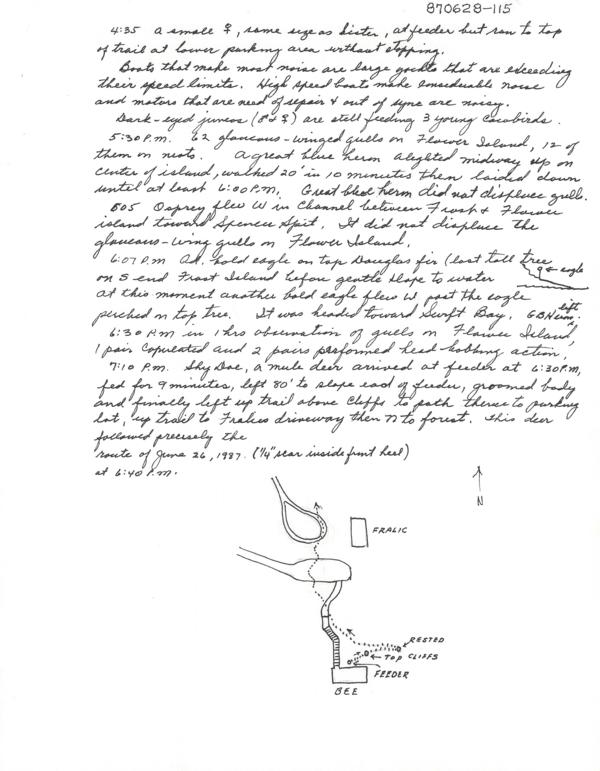 870628-115
4:35 a small ♀, same size as sister, at feeder but ran to top
of trail at lower parking area without stopping.
Boats that make most noise are large yachts that are exceeding
their speed limits. High speed boats make considerable noise
and motors that are need of repair & out of sync are noisy.
Dark-eyed juncos (♂ & ♀) are still feeding 3 young cowbirds.
5:30 P.M. 62 glaucous-winged gulls on Flower Island, 12 of
them on nests. A great blue heron alighted midway up on
center of island, walked 20' in 10 minutes then laided down
until at least 6:00 P.M. Great bled herm did not displace gulls.
505 Osprey flew W in channel between Frost & Flower
island toward Spencer Spit. It did not displace the
glaucous-wing gulls on Flower Island.
6:07 P.M Ad. bald eagle on top Douglas fir (last tall tree
on S end Frost Island before gentle slope to water
eagle
at this moment another bald eagle flew W past the eagle
perched on top tree. It was headed toward Swift Bay. GBHeron left
6:30 P.M in 1 hrs observation of gulls on Flower Island,
1 pair copulated and 2 pairs performed head-bobbing action,
7:10 P.M. Shy Doe, a mule deer arrived at feeder at 6:30 P.M,
fed for 9 minutes, left 80' to slope east of feeder, groomed body
and finally left up trail above Cliffs to path thense to parking
lot, up trail to Fralics driveway then N to forest. This deer
followed precisely the
route of June 26, 1987. (1/4" scar inside front heel)
at 6:40 P.M.
N
FRALIC
RESTED
TOP CLIFFS
FEEDER
BEE